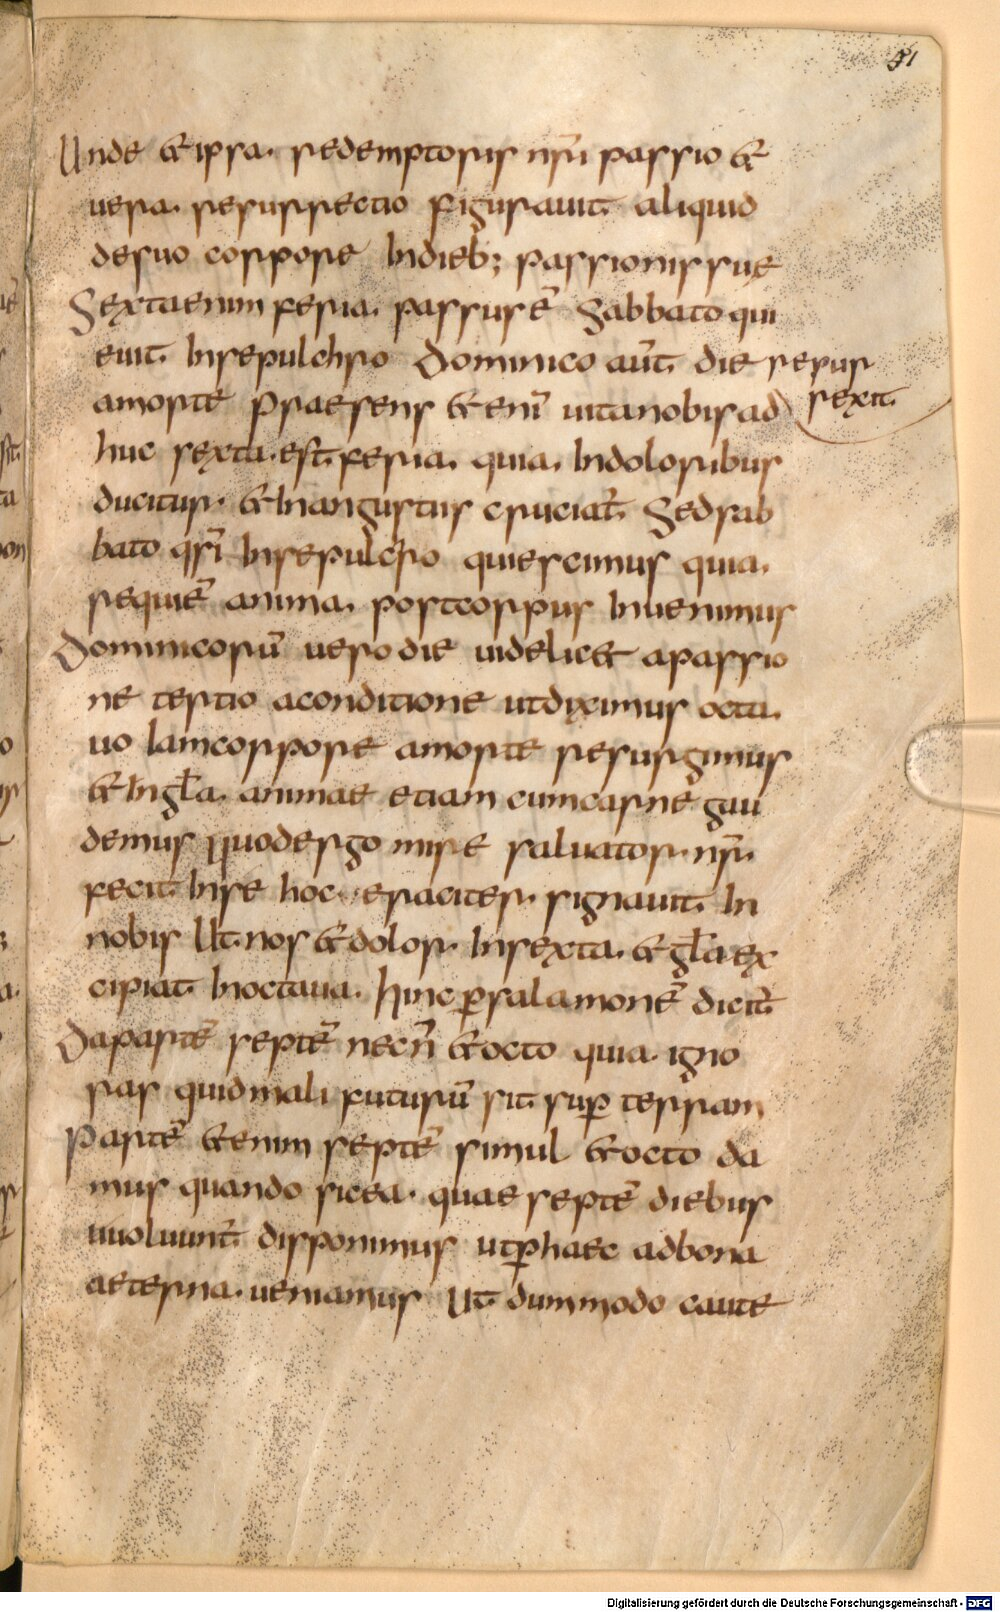 51
Unde & ipsa. redemptoris nr̄i passio &
uera. resurrectio figurauit aliquid
desuo corpore Indieb; passionis suę
Sextaenim feria. passus ē Sabbato qui
euit Insepulchro Dominico aūt die resur
rexit
amorte Praesens & eni̅ uitanobis ad
huc sexta. est. feria. quia. Indoloribus
ducitur. & Inangustiis cruciat̄ Sedsab
bato qs̄i Insepulcro quiescimus quia.
requiē anima. postcorpus Inuenimus
Dominicorū uero die uidelic& apassio
ne tertio aconditione utdiximus octa.
uo Iamcorpore amorte resurgimus
& Ingl̄a. animae etiam cumcarne gau
demus Quodergo mire saluator. nr̄.
fecit Inse hoc eraciter. signauit In
nobis Ut nos & dolor. Insexta. & gl̄a ex
cipiat Inoctaua. hinc ꝑsalamonē dicit̄
Dapartē septē necn̄ & octo quia. igno
ras quidmali futurū sit suꝑ terram
Partē & enim septē simul & octo da
mus quando sicea. quae septē diebus
uuoluunt̄ disponimus utꝑhaec adbona
aeterna. ueniamus Ut dummodo caute
Digitalisierung gefördert durch die Deutsche Forschungsgemeinschaft - DFG